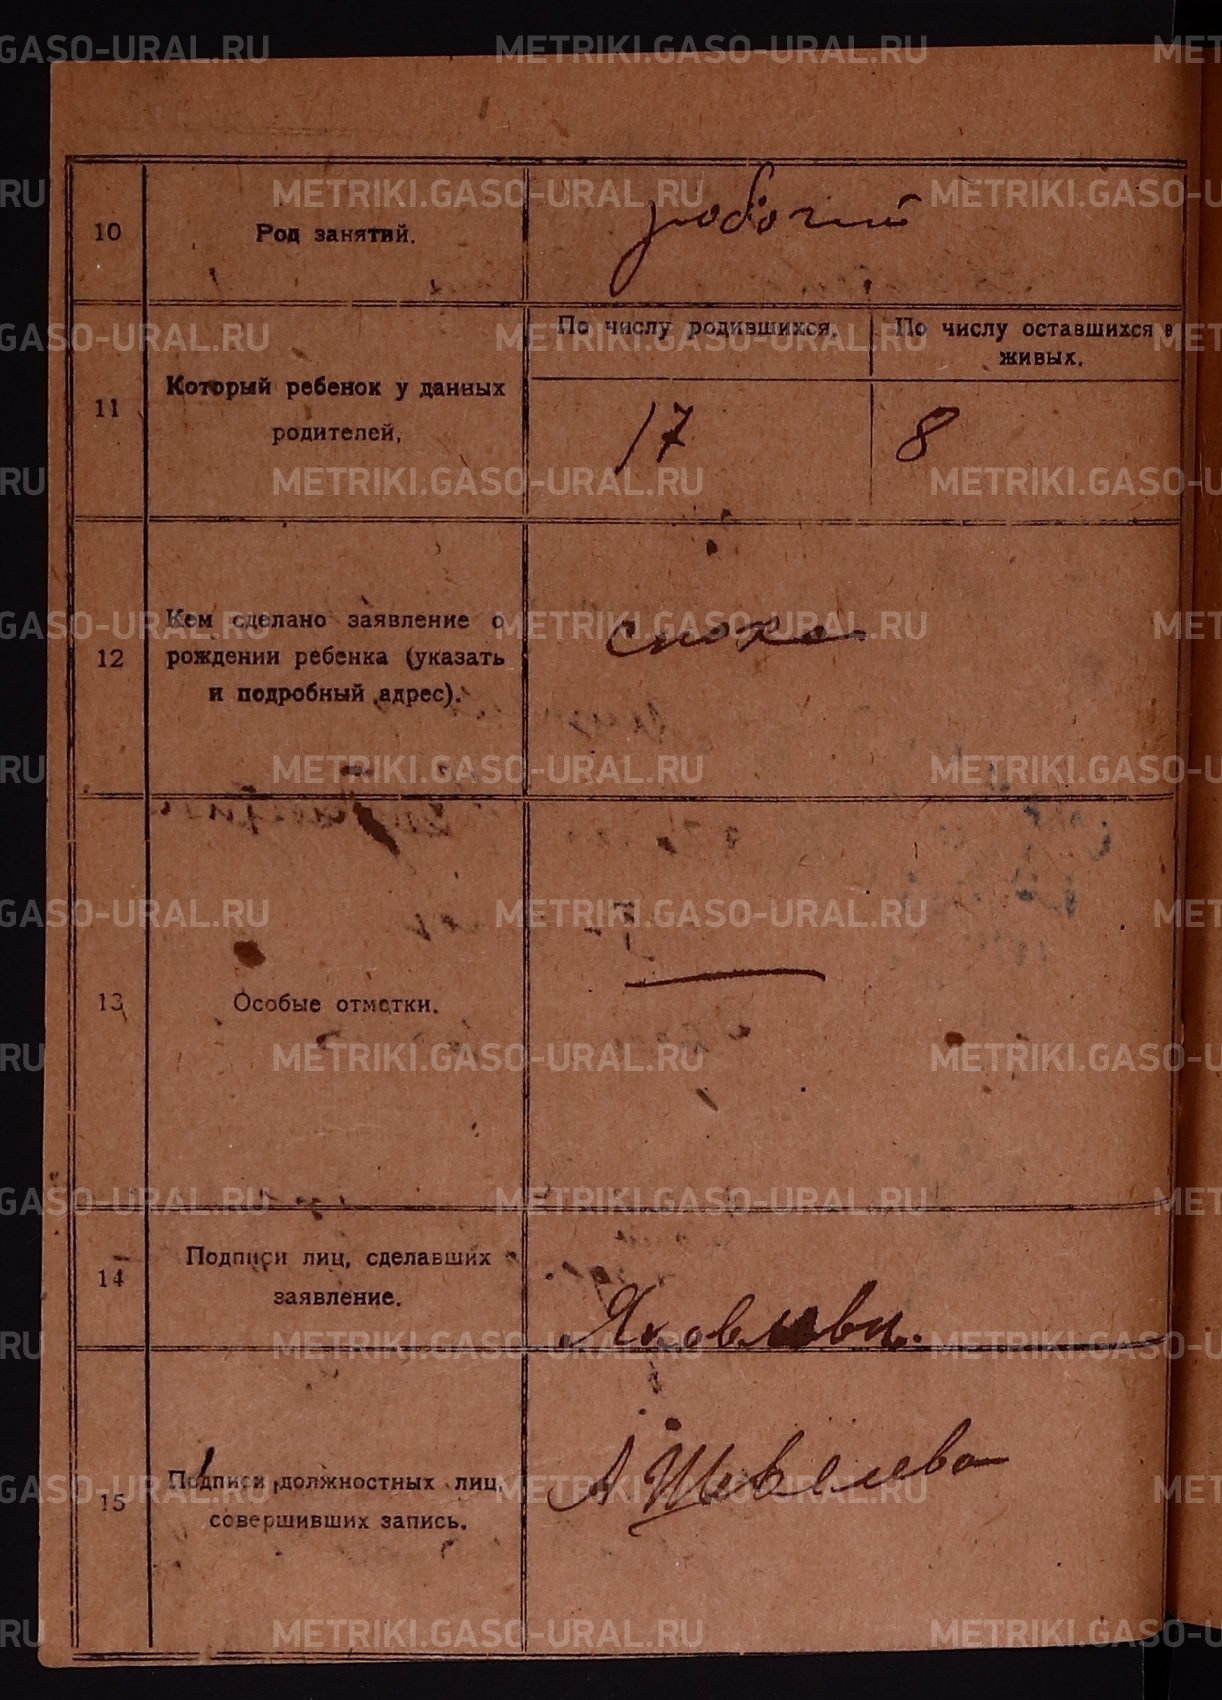 GASO-URAL.RU METRIKI.GASO-URAL.RU
10 Род занятий. рабочий
METRIKI.GASO-URAL.RU
По числу родившихся. По числу оставшихся в
живых.
11 Который ребенок у данных
родителей,
17 8
12 Кем сделано заявление о
рождении ребенка (указать
и подробный адрес).
сноха
13 Особые отметки.
14 Подписи лиц, сделавших
заявление.
Яковлева.
15 Подписи должностных лиц,
совершивших запись.
А. Шевелева